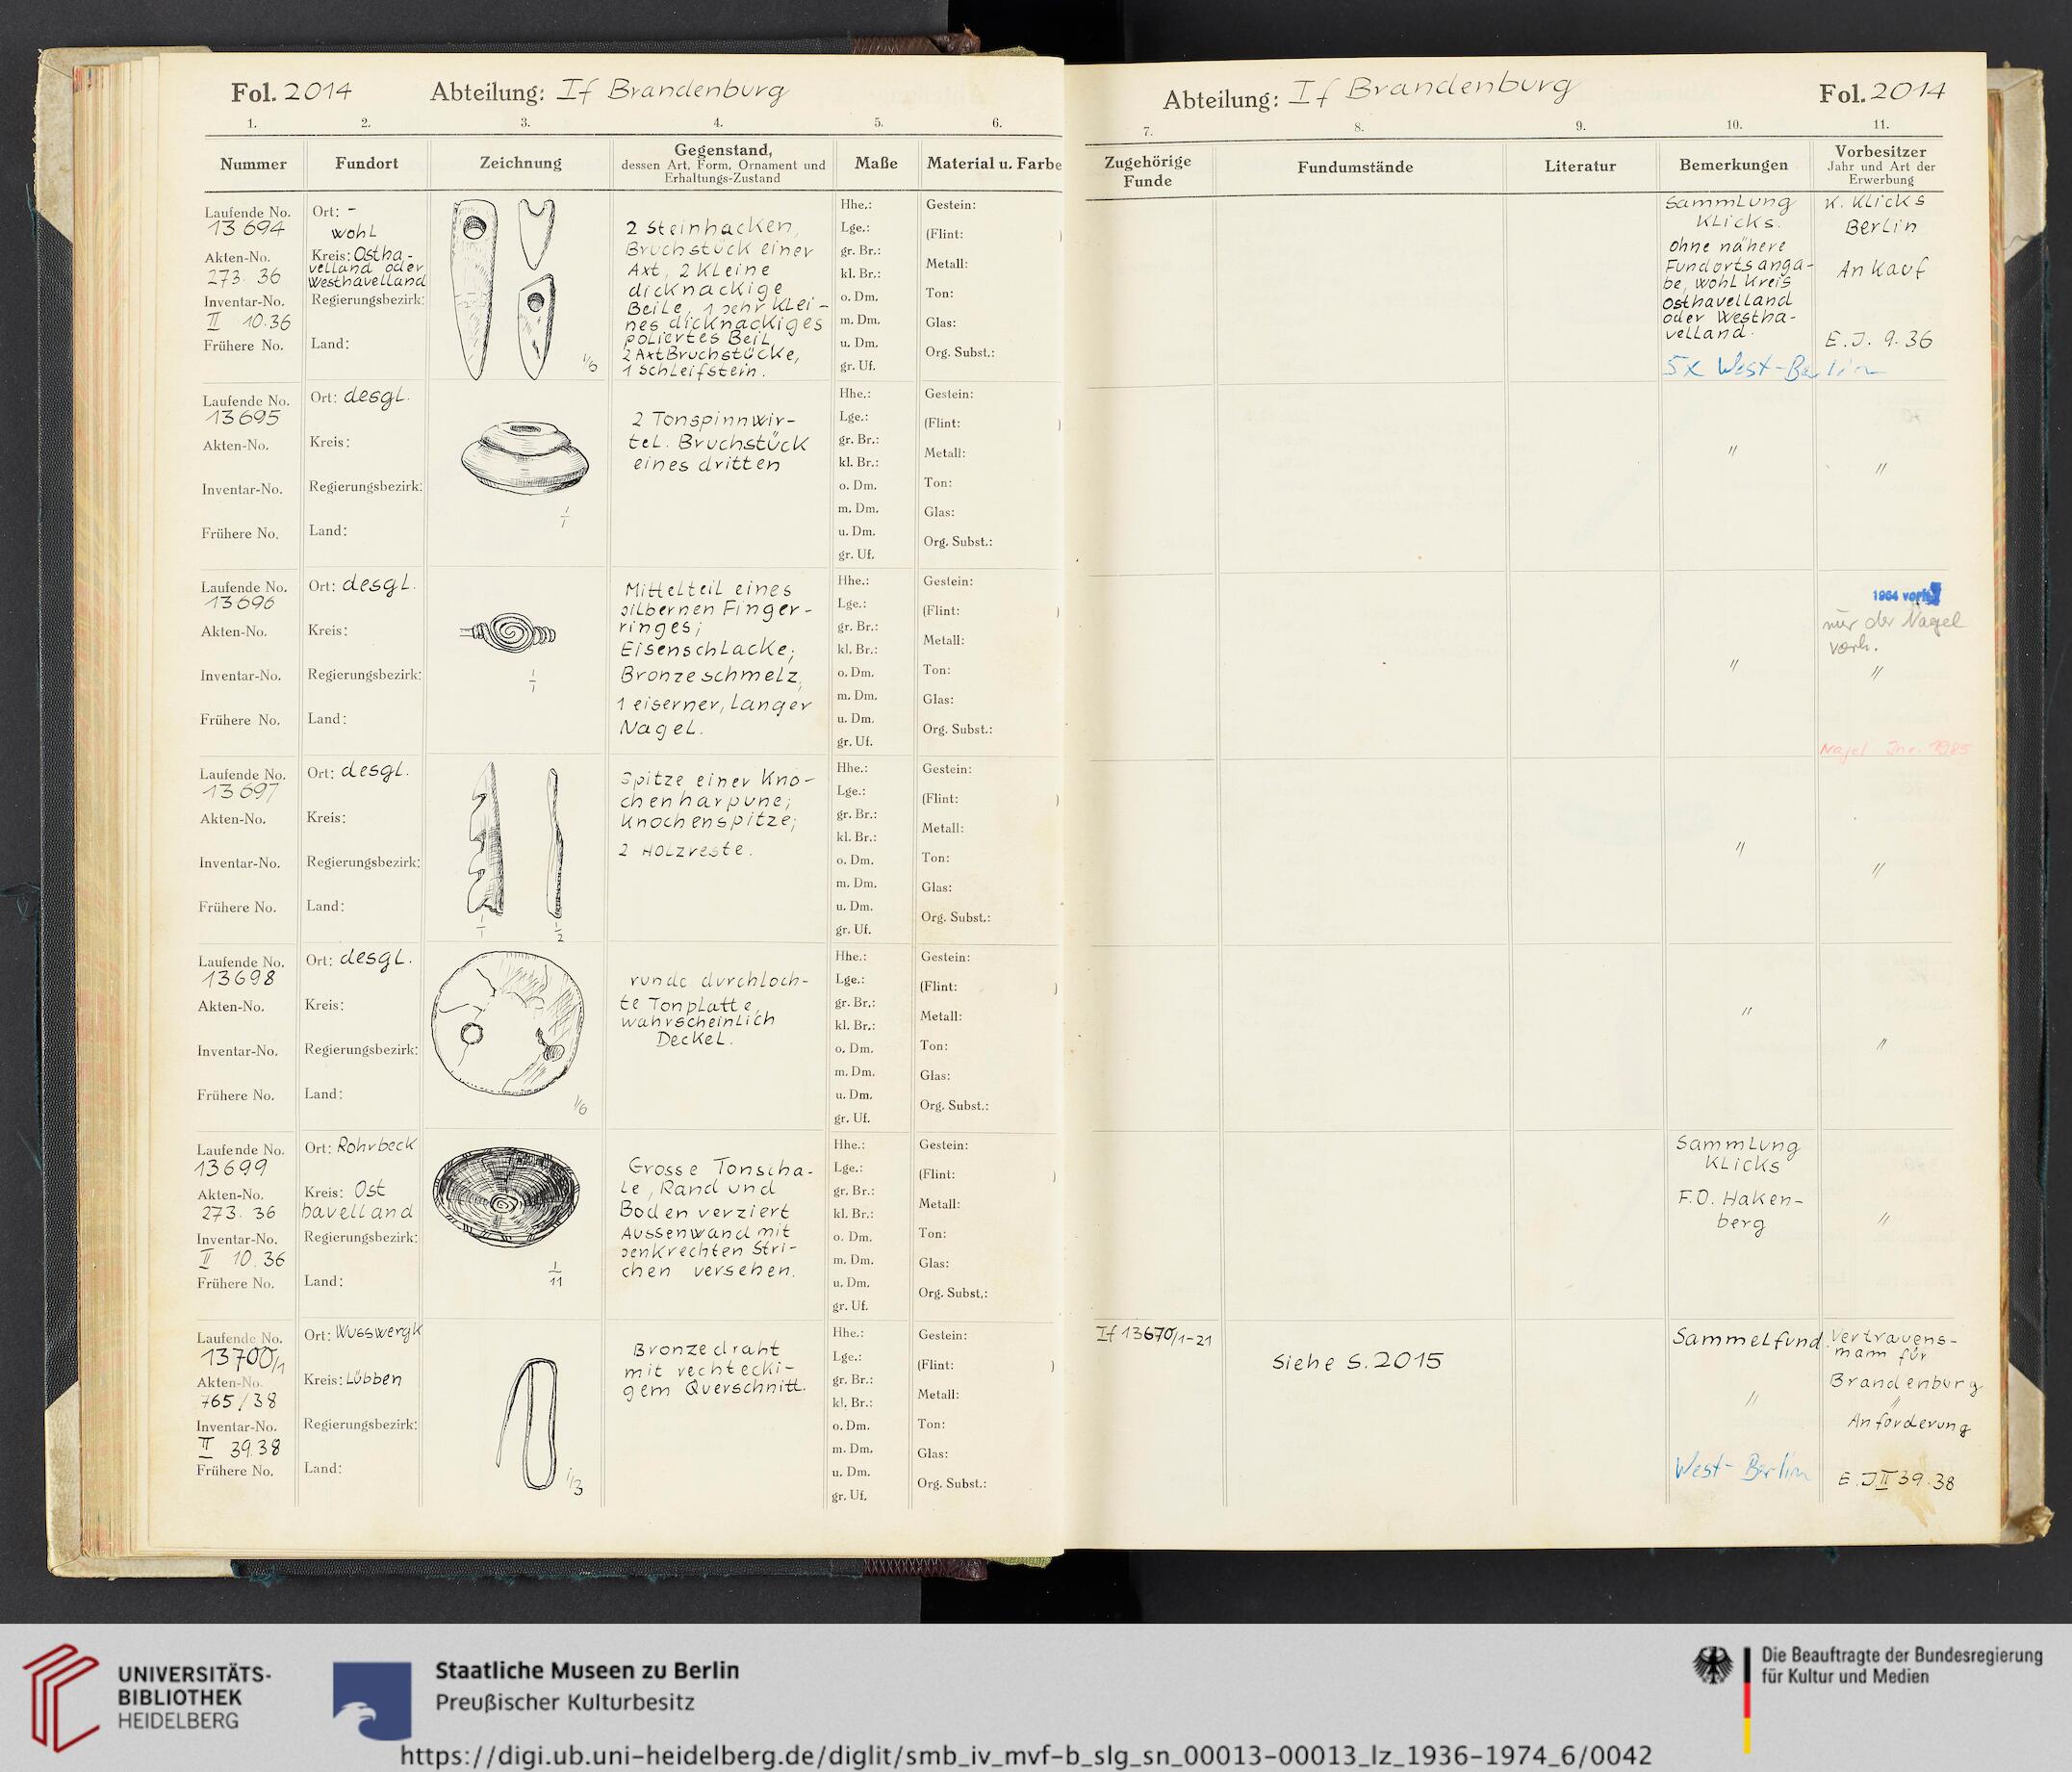 Fol. 2014 Abteilung: If Brandenburg
1. 2. 3. 4. 5. 6.
Nummer Fundort Zeichnung Gegenstand, dessen Art, Form, Ornament und Erhaltungs-Zustand Maße Material u. Farbe
Laufende No.
13694
Akten-No.
273. 36
Inventar-No.
II 10.36
Frühere No.
Ort: -
wohl
Kreis: Ostha-
velland oder
Westhavelland
Regierungsbezirk:
Land:
1/6
2 Steinhacken,
Bruchstück einer
Axt, 2 kleine
dicknackige
Beile, 1 sehr klei-
nes dicknackiges
poliertes Beil,
2 Axt Bruchstücke,
1 Schleifstein.
Hhe.:
Lge.:
gr. Br.:
kl. Br.:
o. Dm.
m. Dm.
u. Dm.
gr. Uf.
Gestein:
(Flint: )
Metall:
Ton:
Glas:
Org. Subst.:
Laufende No.
13695
Akten-No.
Inventar-No.
Frühere No.
Ort: desgl.
Kreis:
Regierungsbezirk:
Land:
1/1
2 Tonspinnwir-
tel. Bruchstück
eines dritten
Hhe.:
Lge.:
gr. Br.:
kl. Br.:
o. Dm.
m. Dm.
u. Dm.
gr. Uf.
Gestein:
(Flint: )
Metall:
Ton:
Glas:
Org. Subst.:
Laufende No.
13696
Akten-No.
Inventar-No.
Frühere No.
Ort: desgl.
Kreis:
Regierungsbezirk:
Land:
1/1
Mittelteil eines
silbernen Finger-
ringes;
Eisenschlacke;
Bronzeschmelz,
1 eiserner, langer
Nagel.
Hhe.:
Lge.:
gr. Br.:
kl. Br.:
o. Dm.
m. Dm.
u. Dm.
gr. Uf.
Gestein:
(Flint: )
Metall:
Ton:
Glas:
Org. Subst.:
Laufende No.
13697
Akten-No.
Inventar-No.
Frühere No.
Ort: desgl.
Kreis:
Regierungsbezirk:
Land:
1/1 1/2
Spitze einer Kno-
chenharpune;
Knochenspitze;
2 Holzreste.
Hhe.:
Lge.:
gr. Br.:
kl. Br.:
o. Dm.
m. Dm.
u. Dm.
gr. Uf.
Gestein:
(Flint: )
Metall:
Ton:
Glas:
Org. Subst.:
Laufende No.
13698
Akten-No.
Inventar-No.
Frühere No.
Ort: desgl.
Kreis:
Regierungsbezirk:
Land:
1/6
runde durchloch-
te Tonplatte,
wahrscheinlich
Deckel.
Hhe.:
Lge.:
gr. Br.:
kl. Br.:
o. Dm.
m. Dm.
u. Dm.
gr. Uf.
Gestein:
(Flint: )
Metall:
Ton:
Glas:
Org. Subst.:
Laufende No.
13699
Akten-No.
273. 36
Inventar-No.
II 10.36
Frühere No.
Ort: Rohrbeck
Kreis: Ost
havelland
Regierungsbezirk:
Land:
1/11
Grosse Tonscha-
le, Rand und
Boden verziert
Aussenwand mit
senkrechten Stri-
chen versehen.
Hhe.:
Lge.:
gr. Br.:
kl. Br.:
o. Dm.
m. Dm.
u. Dm.
gr. Uf.
Gestein:
(Flint: )
Metall:
Ton:
Glas:
Org. Subst.:
Laufende No.
13700/1
Akten-No.
765/38
Inventar-No.
II 39.38
Frühere No.
Ort: Wusswergk
Kreis: Lübben
Regierungsbezirk:
Land:
1/3
Bronzedraht
mit rechtecki-
gem Querschnitt.
Hhe.:
Lge.:
gr. Br.:
kl. Br.:
o. Dm.
m. Dm.
u. Dm.
gr. Uf.
Gestein:
(Flint: )
Metall:
Ton:
Glas:
Org. Subst.:
Abteilung: If Brandenburg Fol. 2014
7. 8. 9. 10. 11.
Zugehörige Funde Fundumstände Literatur Bemerkungen Vorbesitzer Jahr und Art der Erwerbung
Sammlung
Klicks.
ohne nähere
Fundortsanga-
be, wohl Kreis
Osthavelland
oder Westha-
velland.
5x West-Berlin
K. Klicks
Berlin
Ankauf
E.J. 9.36
" "
1964 vorh.
nur der Nagel
vorh.
" "
Nagel Inv. 1985
" "
" "
Sammlung
Klicks
F.O. Haken-
berg
"
If 13670/1-21
siehe S. 2015
Sammelfund.
"
West-Berlin
Vertrauens-
mann für
Brandenburg
"
Anforderung
E.J II 39.38
UNIVERSITÄTS-
BIBLIOTHEK
HEIDELBERG
Staatliche Museen zu Berlin
Preußischer Kulturbesitz
Die Beauftragte der Bundesregierung
für Kultur und Medien
https://digi.ub.uni-heidelberg.de/diglit/smb_iv_mvf-b_slg_sn_00013-00013_lz_1936-1974_6/0042